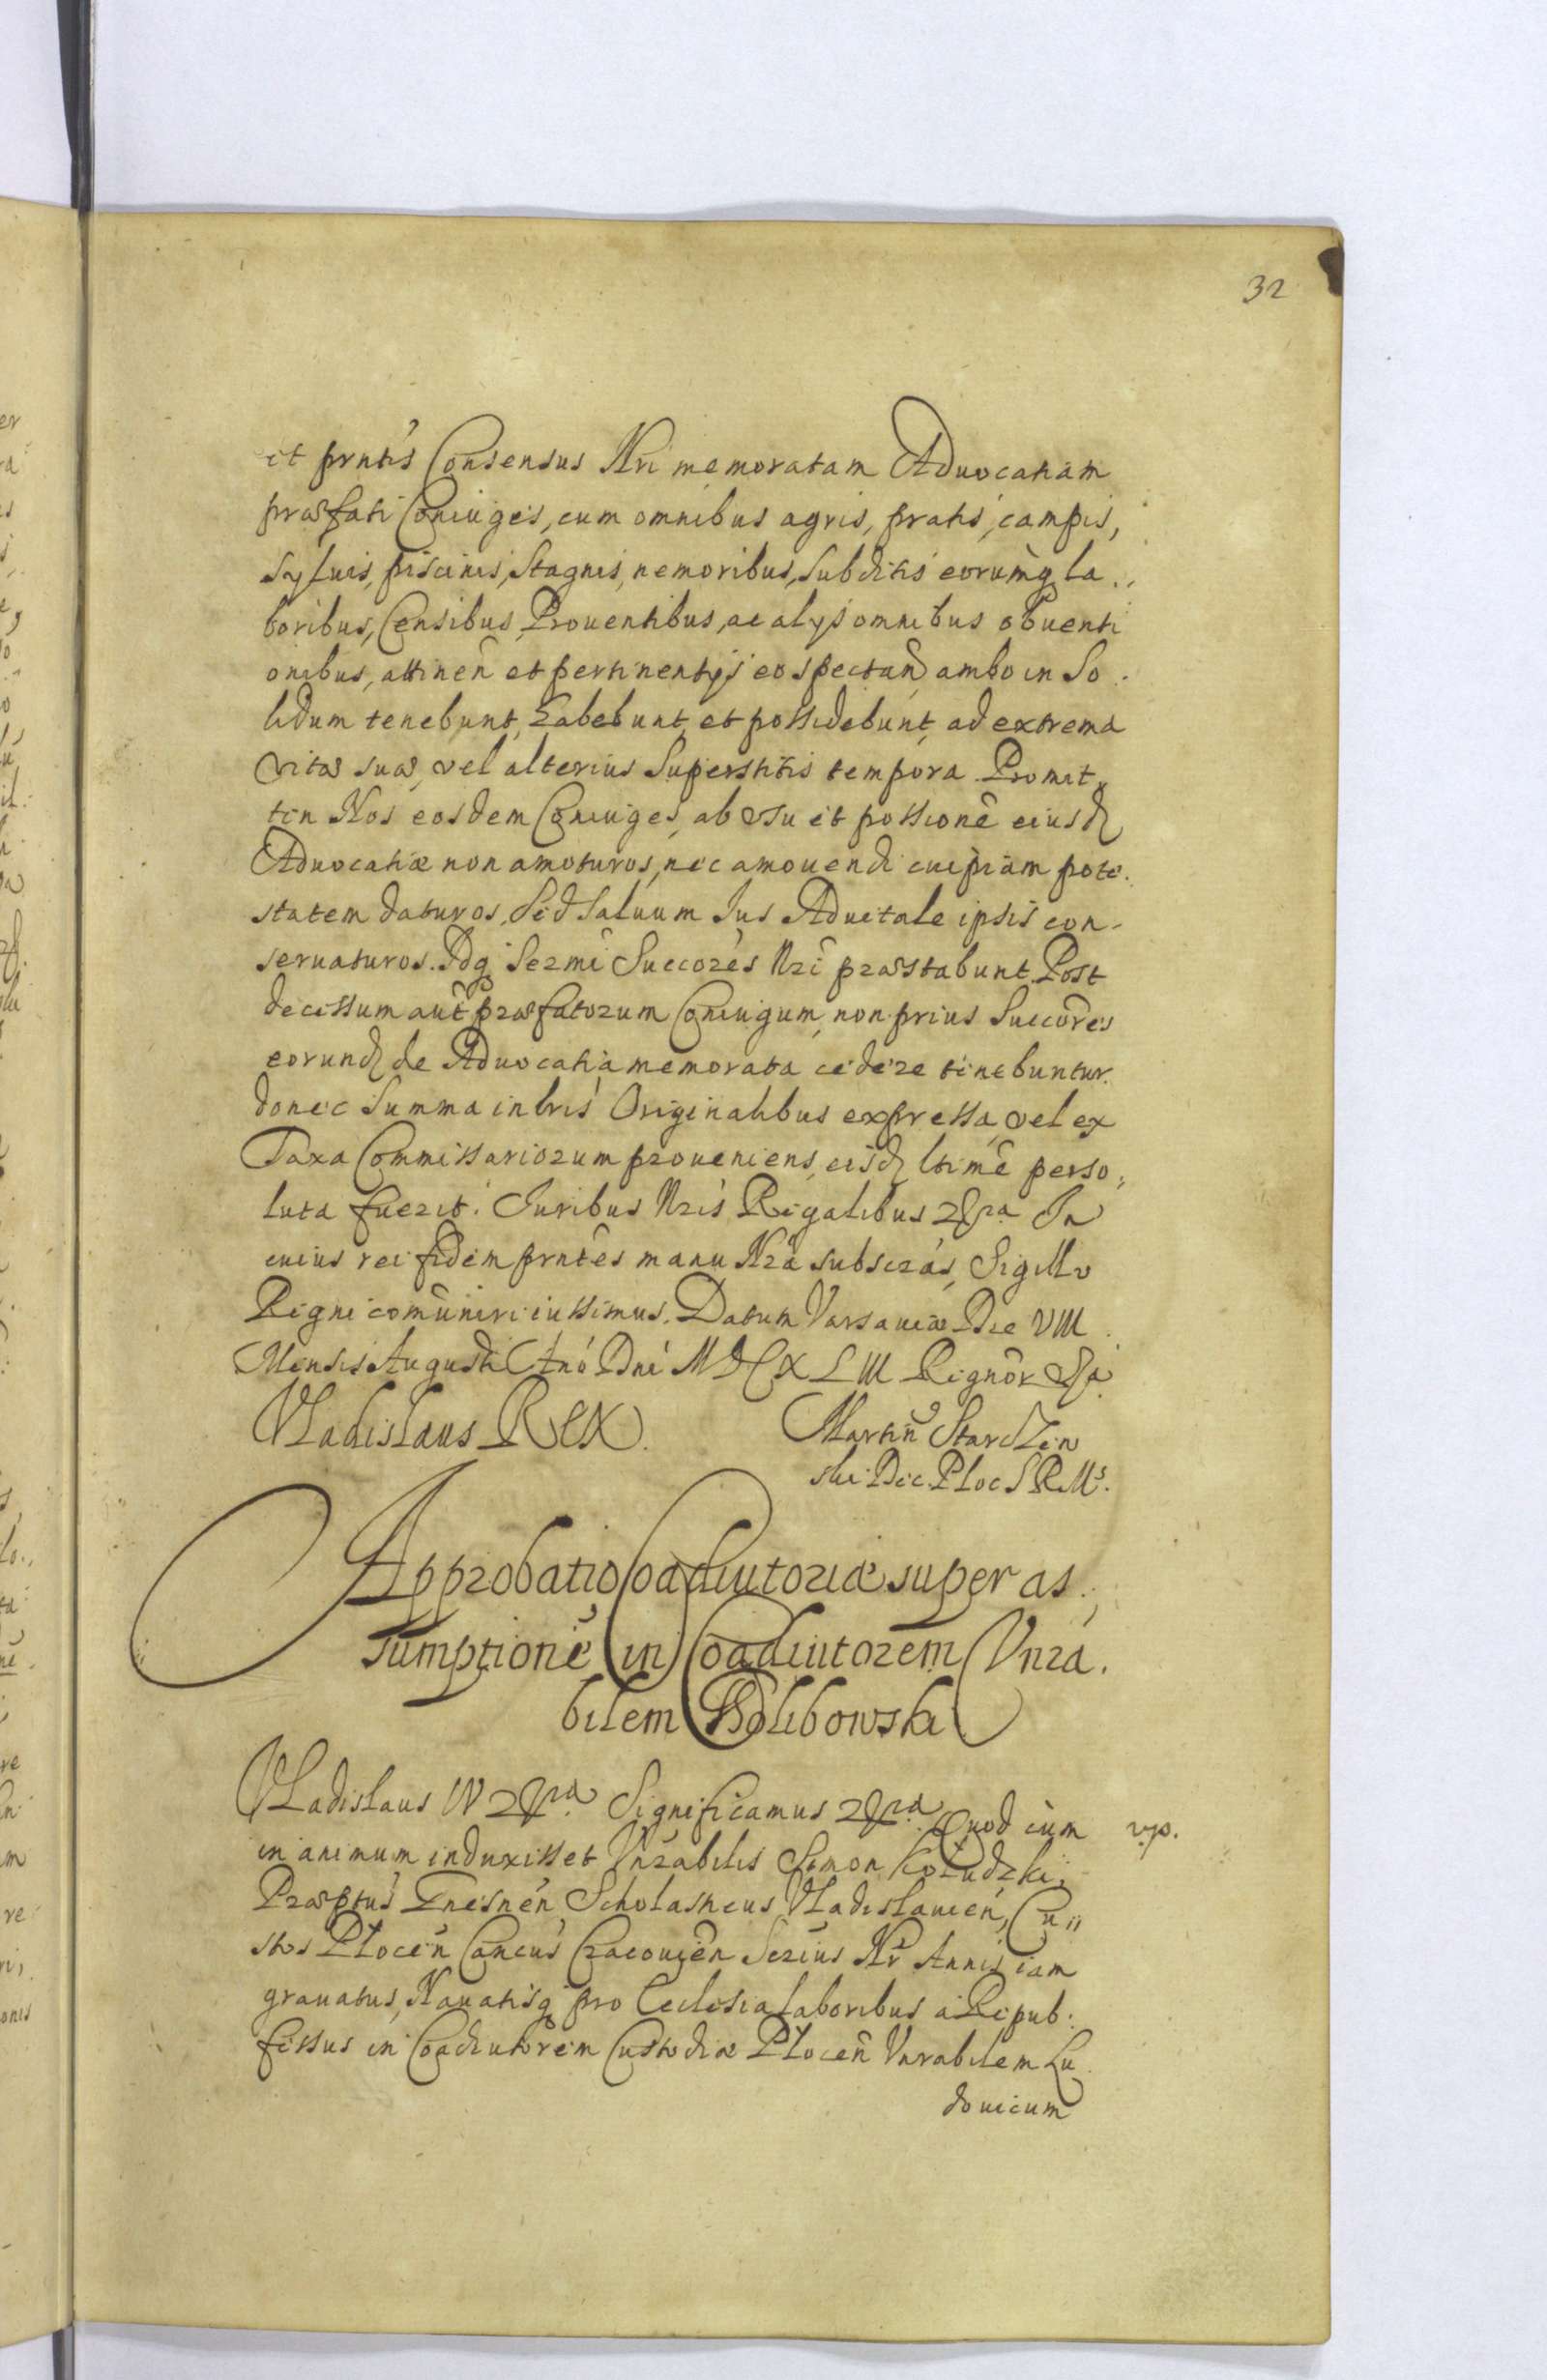 32
et prntis Consensus Nri memoratam Advocatiam
præfati Coniuges, cum omnibus agris, pratis, campis,
Sylvis, piscinis, Stagnis, nemoribus, Subditis eorumq la,,
boribus, Censibus, Proventibus, ac alys omnibus obventi
onibus, attinen et pertinentys eo spectan ambo in So
lidum tenebunt, habebunt, et possidebunt, ad extrema
vitæ suæ, vel alterius Superstitis tempora. Promit,
ten Nos eosdem Coniuges, ab usu et possione eiusd
Advocatiæ non amoturos, nec amovendi cuipiam pote.
statem daturos, Sed Salvum Ius Advitale ipsis con-
servaturos. Idq Sermi Succores Nri præstabunt. Post
decessum aut præfatorum Coniugum, non prius Succores
eorund de Advocatia memorata cedere tenebuntur.
donec Summa in lris Originalibus expressa, vel ex
Taxa Commissariorum proveniens, eisd ltime perso,
luta fuerit. Iuribus Nris Regalibus &ra In
cuius rei fidem prntes manu Nra subscras, Sigillo
Regni comuniri iussimus. Datum Varsaviæ Die VIII
Mensis Augusti Ano Dni MDCXLIII Regnor &a
Vladislaus REX. Martin Starczew
ski Dec. Ploc S R Ms.
Approbatio Coadiutoriæ super as,
sumptione in Coadiutorem Vnra.
bilem Dolibowski
Vladislaus IV &ra. Significamus &ra. Quod cum
vp.
in animum induxisset Vnrabilis Simon Kołudzki,
Præptus Gnesnen, Scholasticus Vladislavien, Cu,,
stos Plocen Cancus Cracovien Serius Nr Annis iam
gravatus, Navatisq pro Ecclesia laboribus a Repub.
fessus in Coadiutorem Custodiæ Plocen Vnrabilem Lu
dovicum